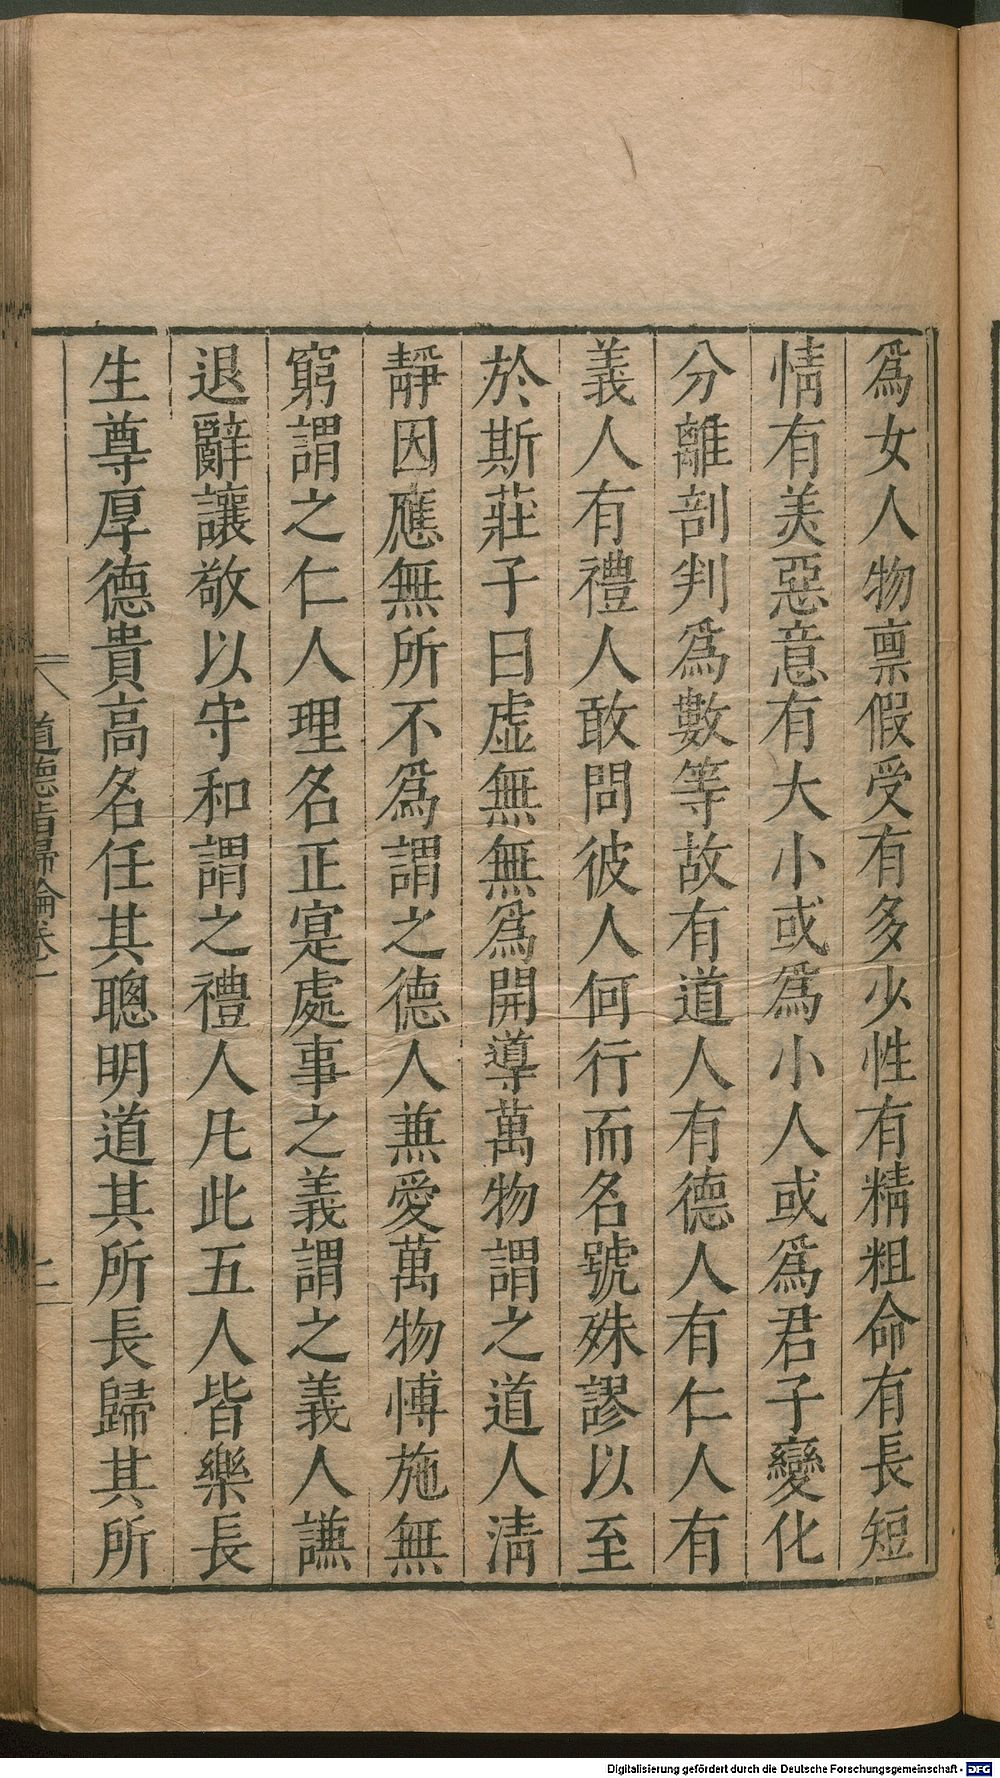 爲女人物禀假受有多少性有精粗命有長短
情有美惡意有大小或爲小人或爲君子變化
分離剖判爲數等故有道人有德人有仁人有
義人有禮人敢問彼人何行而名號殊謬以至
於斯莊子曰虚無無爲開導萬物謂之道人清
靜因應無所不爲謂之德人兼愛萬物愽施無
窮謂之仁人理名正寔處事之義謂之義人謙
退辭讓敬以守和謂之禮人凡此五人皆樂長
生尊厚德貴高名任其聰明道其所長歸其所
道德指歸論卷一
二
Digitalisierung gefördert durch die Deutsche Forschungsgemeinschaft - DFG